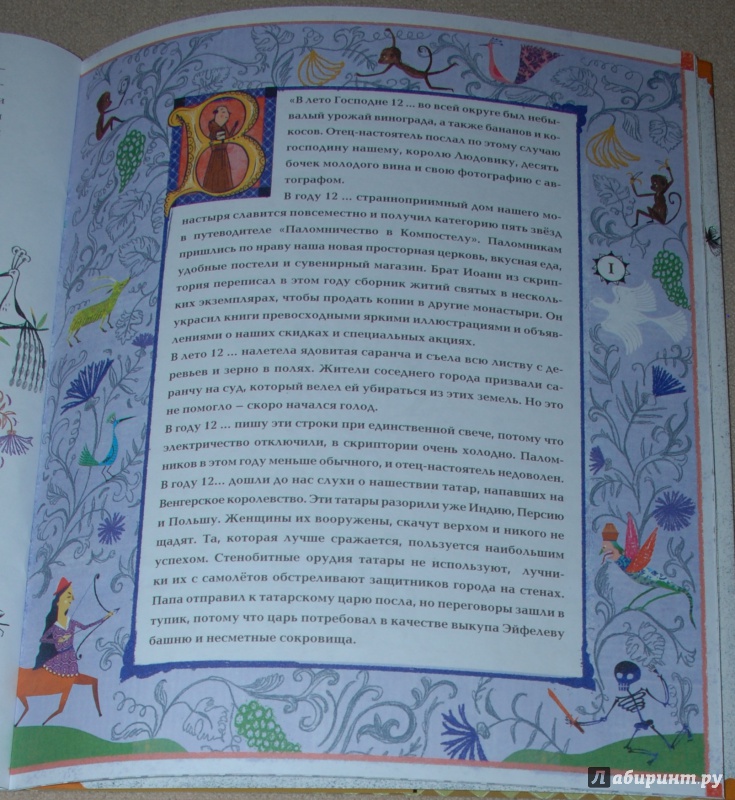 «В лето Господне 12 ... во всей округе был небы-
валый урожай винограда, а также бананов и ко-
косов. Отец-настоятель послал по этому случаю
господину нашему, королю Людовику, десять
бочек молодого вина и свою фотографию с ав-
тографом.
В году 12 ... странноприимный дом нашего мо-
настыря славится повсеместно и получил категорию пять звёзд
в путеводителе «Паломничество в Компостелу». Паломникам
пришлись по нраву наша новая просторная церковь, вкусная еда,
удобные постели и сувенирный магазин. Брат Иоанн из скрип-
тория переписал в этом году сборник житий святых в несколь-
ких экземплярах, чтобы продать копии в другие монастыри. Он
украсил книги превосходными яркими иллюстрациями и объяв-
лениями о наших скидках и специальных акциях.
В лето 12 ... налетела ядовитая саранча и съела всю листву с де-
ревьев и зерно в полях. Жители соседнего города призвали са-
ранчу на суд, который велел ей убираться из этих земель. Но это
не помогло – скоро начался голод.
В году 12 ... пишу эти строки при единственной свече, потому что
электричество отключили, в скриптории очень холодно. Палом-
ников в этом году меньше обычного, и отец-настоятель недоволен.
В году 12... дошли до нас слухи о нашествии татар, напавших на
Венгерское королевство. Эти татары разорили уже Индию, Персию
и Польшу. Женщины их вооружены, скачут верхом и никого не
щадят. Та, которая лучше сражается, пользуется наибольшим
успехом. Стенобитные орудия татары не используют, лучни-
ки их с самолётов обстреливают защитников города на стенах.
Папа отправил к татарскому царю посла, но переговоры зашли в
тупик, потому что царь потребовал в качестве выкупа Эйфелеву
башню и несметные сокровища.
В
I
Лабиринт.ру